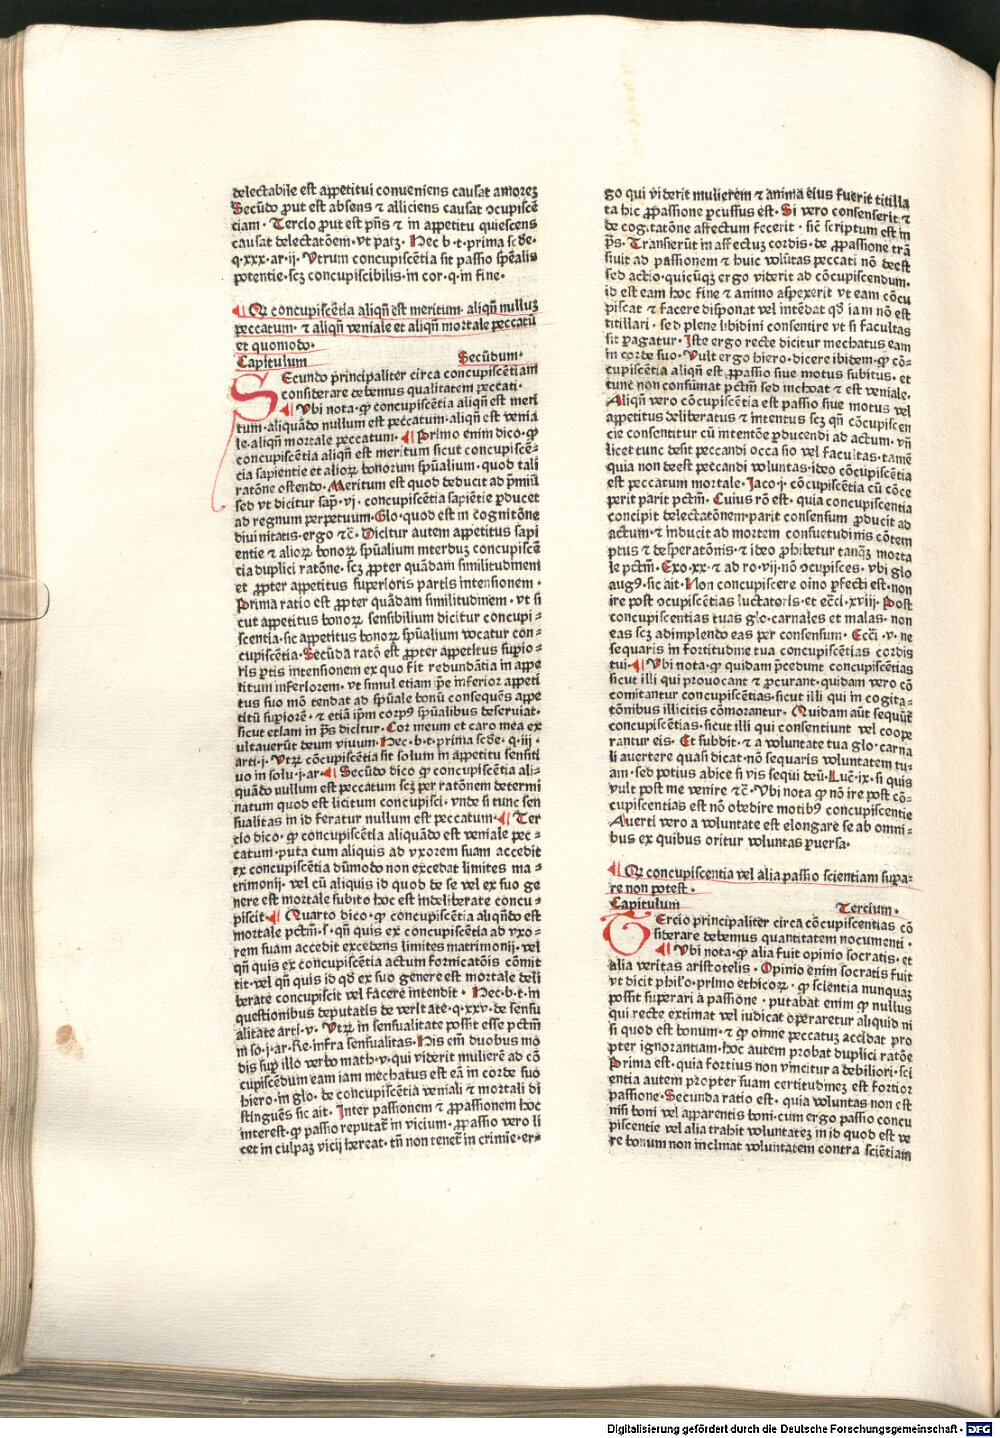 delectabile est appetitui conueniens causat amoreꝫ
Secūdo ꝓut est absens ⁊ alliciens causat ɔcupiscē
ciam · Tercio ꝓut est pn̄s ⁊ in appetitu quiescens
causat delectatōem · vt patꝫ · Hec b · t · prima scd̄e ·
q · xxx · ar · ij · Vtrum concupiscētia sit passio sp̄ealis
potentie · scꝫ concupiscibilis · in cor · q · in fine ·
¶ Qꝙ concupiscētia aliqn̄ est meritum · aliqn̄ nulluꝫ
peccatum · ⁊ aliqn̄ veniale et aliqn̄ mortale peccatū
et quomodo ·
Capitulum Secūdum ·
SEcundo principaliter circa concupiscētiam
considerare debemus qualitatem peccati ·
¶ Vbi nota · ꝙ concupiscētia aliqn̄ est meri
tum · aliquādo nullum est peccatum · aliqn̄ est venia
le · aliqn̄ mortale peccatum · ¶ Primo enim dico · ꝙ
concupiscētia aliqn̄ est meritum sicut concupiscē⸗
cia sapientie et alioꝝ bonorum spūalium · quod tali
ratōne ostendo · Meritum est quod deducit ad p̄miū
sed vt dicitur sap̄ · vj · concupiscētia sapiētie ꝑducet
ad regnum perpetuum · Glo · quod est in cognitōne
diuinitatis · ergo ⁊c̄ · Dicitur autem appetitus sapi
entie ⁊ alioꝝ bonoꝝ spūalium interduꝫ concupiscē
tia duplici ratōne · scꝫ ꝓpter quādam similitudinem
et ꝓpter appetitus superioris partis intensionem ·
Prima ratio est ꝓpter quādam similitudinem · vt si
cut appetitus bonoꝝ sensibilium dicitur concupi⸗
scentia · sic appetitus bonoꝝ spūalium vocatur con⸗
cupiscētia · Secūda ratō est ꝓpter appetitus supio⸗
ris ꝑtis intensionem ex quo fit redundātia in appe
titum inferiorem · vt simul etiam ip̄e inferior appeti
tus suo mō tendat ad spūale bonū consequēs appe
titū supiorē · ⁊ etiā ip̄m corpꝰ spūalibus deseruiat ·
sicut etiam in p̄s dicitur · Cor meum et caro mea ex
ultauerūt deum viuum · Hec · b · t · prima scd̄e · q · iij ·
arti · j · Vtꝝ cōcupiscētia sit solum in appetitu sensiti
uo in solu · j · ar · ¶ Secūdo dico ꝙ concupiscētia ali⸗
quādo nullum est peccatum scꝫ per ratōnem determi
natum quod est licitum concupisci · vnde si tunc sen
sualitas in id feratur nullum est peccatum · ¶ Ter
tio dico · ꝙ concupiscētia aliquādo est veniale pec⸗
catum · puta cum aliquis ad vxorem suam accedit
ex concupiscētia dūmodo non excedat limites ma⸗
trimonij · vel cū aliquis id quod de se vel ex suo ge
nere est mortale subito hoc est indeliberate concu⸗
piscit · ¶ Quarto dico · ꝙ concupiscētia aliqn̄do est
mortale pctm̄ · s · qn̄ quis ex concupiscētia ad vxo⸗
rem suam accedit excedens limites matrimonij · vel
qn̄ quis ex concupiscētia actum fornicatōis cōmit
tit · vel qn̄ quis id qd̄ ex suo genere est mortale deli
berate concupiscit vel facere intendit · Hec · b · t · in
questionibus deputatis de veritate · q · xxv · de sensu
alitate arti · v · Vtꝝ in sensualitate possit esse pctm̄
in so · j · ar · Re · infra sensualitas · His em̄ duobus mo
dis sup̄ illo verbo math · v · qui viderit mulierē ad cō
cupiscēdum eam iam mechatus est eā in corde suo
hiero · in glo · de concupiscētia veniali ⁊ mortali di
stinguēs sic ait · Inter passionem ⁊ ꝓpassionem hoc
interest · ꝙ passio reputat̄ in vicium · ꝓpassio vero li
cet in culpaꝫ vicij hereat · tn̄ non tenet̄ in crimīe · er⸗
go qui viderit mulierem ⁊ anima eius fuerit titilla
ta hic ꝓpassione ꝑcussus est · Si vero consenserit ⁊
de cogitatōne affectum fecerit · sic̄ scriptum est in
p̄s · Transierūt in affectuꝫ cordis · de ꝓpassione trā
siuit ad passionem ⁊ huic volūtas peccati nō deest
sed actio · quicūqꝫ ergo viderit ad cōcupiscendum ·
id est eam hoc fine ⁊ animo aspexerit vt eam cōcu
piscat ⁊ facere disponat vel intēdat qd̄ iam nō est
titillari · sed plene libidini consentire vt si facultas
sit ꝑagatur · Iste ergo recte dicitur mechatus eam
in corde suo · Vult ergo hiero · dicere ibidem · ꝙ cō⸗
cupiscētia aliqn̄ est ꝓpassio siue motus subitus · et
tunc non consūmat pctm̄ sed inchoat ⁊ est veniale ·
Aliqn̄ vero cōcupiscētia est passio siue motus vel
appetitus deliberatus ⁊ intentus scꝫ qn̄ cōcupiscen
cie consentitur cū intentōe ꝑducendi ad actum · vn̄
licet tunc desit peccandi occasio vel facultas · tamē
quia non deest peccandi voluntas · ideo cōcupiscētia
est peccatum mortale · Iaco · j · cōcupiscētia cū cōce
perit parit pctm̄ · Cuius rō est · quia concupiscentia
concipit delectatōnem · parit consensum ꝓducit ad
actum · ⁊ inducit ad mortem consuetudinis cōtem
ptus ⁊ desperatōnis · ⁊ ideo ꝓhibetur tanqꝫ morta
le pctm̄ · Exo · xx · ⁊ ad ro · vij · nō ɔcupisces · vbi glo
augꝰ · sic ait · Non concupiscere oīno ꝑfecti est · non
ire post ɔcupiscētias luctatoris · et ecc̄i · xviij · Post
concupiscentias tuas glo · carnales et malas · non
eas scꝫ adimplendo eas per consensum · Ecc̄i · v · ne
sequaris in fortitudine tua concupiscētias cordis
tui · ¶ Vbi nota · ꝙ quidam p̄cedunt concupiscētias
sicut illi qui prouocant ⁊ ꝓcurant · quidam vero cō
comitantur concupiscētias · sicut illi qui in cogita⸗
tōnibus illicitis cōmorantur · Quidam aūt sequūt̄
concupiscētias · sicut illi qui consentiunt vel coope
rantur eis · Et subdit · ⁊ a voluntate tua glo · carna
li auertere quasi dicat · nō sequaris voluntatem tu⸗
am · sed potius abice si vis sequi deū · Luc̄ · ix · si quis
vult post me venire ⁊c̄ · Vbi nota ꝙ nō ire post cō⸗
cupiscentias est nō obedire motibꝰ concupiscentie
Auerti vero a voluntate est elongare se ab omni⸗
bus ex quibus oritur voluntas ꝑuersa ·
¶ Qꝙ concupiscentia vel alia passio scientiam supa⸗
re non potest ·
Capitulum Tercium ·
TErcio principaliter circa cōcupiscentias cō
siderare debemus quantitatem nocumenti ·
¶ Vbi nota · ꝙ alia fuit opinio socratis · et
alia veritas aristotelis · Opinio enim socratis fuit
vt dicit philꝰo · primo ethicoꝝ · ꝙ scientia nunquaꝫ
possit superari a passione · putabat enim ꝙ nullus
qui recte extimat vel iudicat operaretur aliquid ni
si quod est bonum · ⁊ ꝙ omne peccatuꝫ accidat pro
pter ignorantiam · hoc autem probat duplici ratōe
Prima est · quia fortius non vincitur a debiliori · sci
entia autem propter suam certitudineꝫ est fortior
passione · Secunda ratio est · quia voluntas non est
nisi boni vel apparentis boni · cum ergo passio concu
piscentie vel alia trahit voluntateꝫ in id quod est ve
re bonum non inclinat voluntatem contra sciētiam
Digitalisierung gefördert durch die Deutsche Forschungsgemeinschaft · DFG